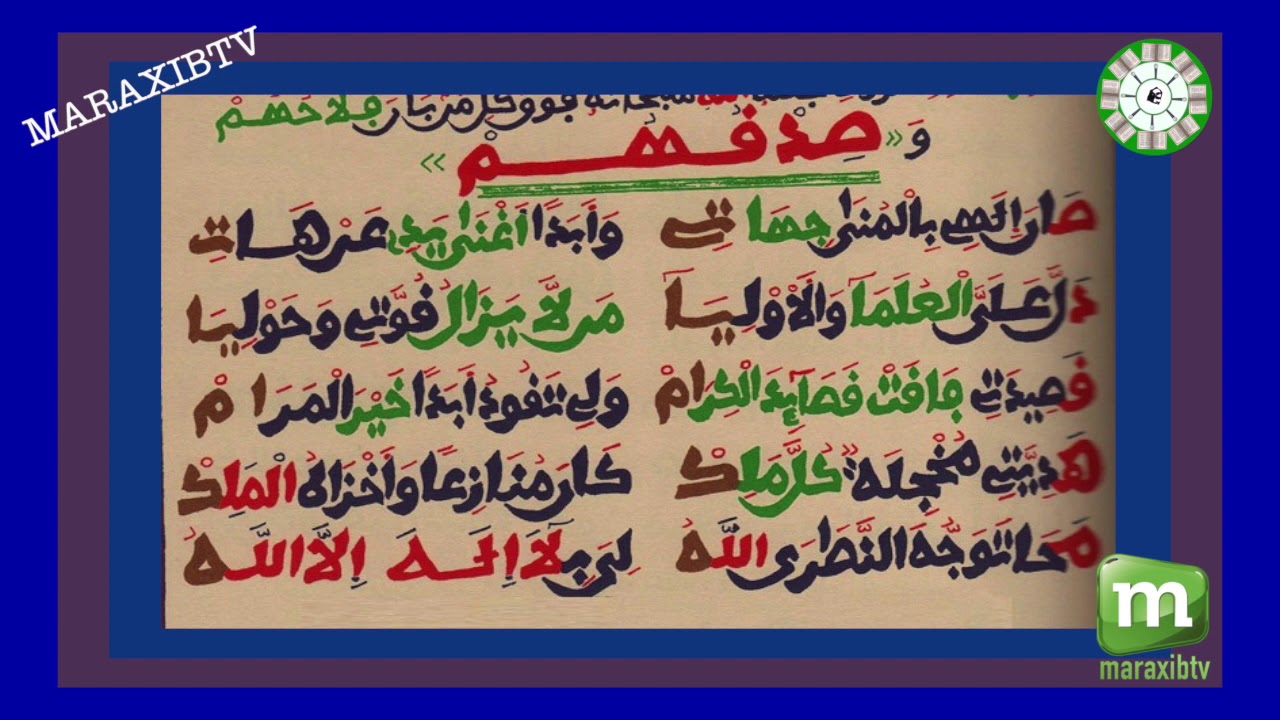 MARAXIBTV
فوق كل من بان فلاحهم
و «صدقهم»
صان إلهي بالمنى جهاتي وأبدا أغنى يدي عن هات
دل على العلماء والاولياء من لا يزال قوتي وحوليا
قصيدتي فاقت قصائد الكرام ولي تقود أبدا خير المرام
هديتي مخجلة كل ملك كان منازعا وأخزاه الملك
محا توجه النصارى الله لي بلا إله إلا الله
m
maraxibtv